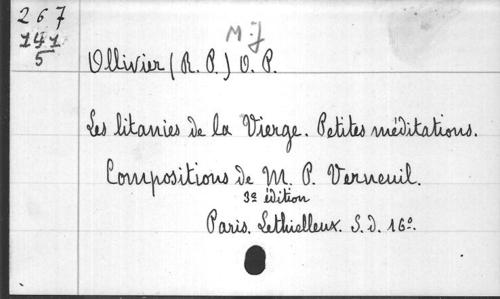 267
141
5
M-J
Ollivier (R. P.) O. P.
Les litanies de la Vierge. Petites méditations.
Compositions de M. P. Verneuil.
3e édition
Paris. Lethielleux. S. d. 16o.